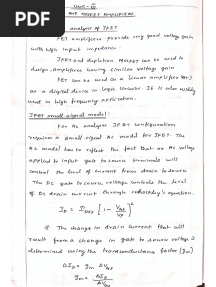 PDF
UNIT-IV
AND MOSFET AMPLIFIERS
analysis of JFET
FET amplifiers provide very good voltage gain
with high input impedance.
JFET and depletion MOSFET can be used to
design amplifiers having similar voltage gain
FET can be used as a linear amplifier (or)
as a digital device in logic circuits. It is also widely
used in high frequency application.
JFET small signal model:
For Ac analysis JFET configuration
requires a small signal Ac model for JFET. The
Ac model has to reflect the fact that an Ac voltage
applied to input gate to source terminals will
control the level of current from drain to source
The DC gate to source voltage controls the level
of DC drain current through schockley's equation.
ID = IDSS [1 - VGS/VP]²
The change in drain current that will
result from a change in gate to source voltage is
determined using the transconductance factor (gm)
ΔID = gm ΔVGS
gm = ΔID/ΔVGS